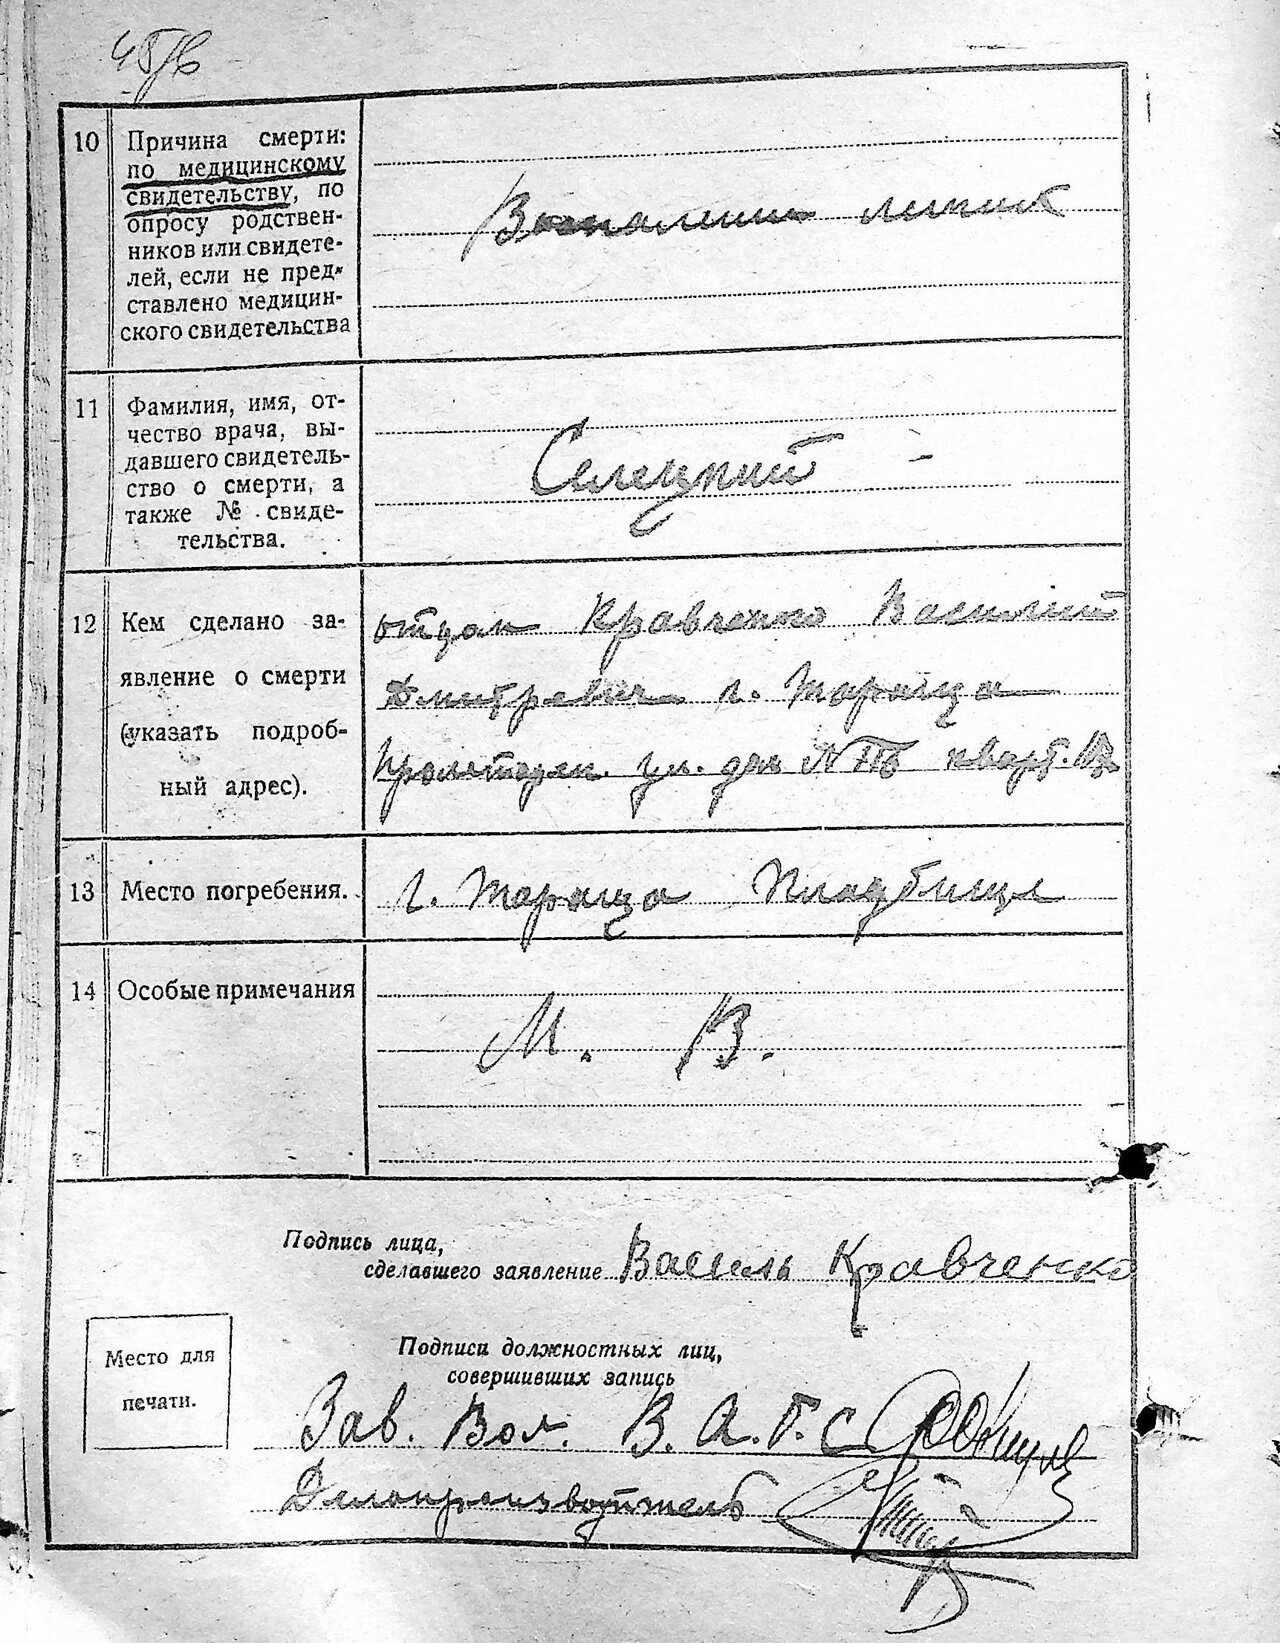 10 Причина смерти:
по медицинскому
свидетельству, по
опросу родствен-
ников или свидете-
лей, если не пред-
ставлено медицин-
ского свидетельства
Воспаление легких
11 Фамилия, имя, от-
чество врача, вы-
давшего свидетель-
ство о смерти, а
также № свиде-
тельства.
Селецкий
12 Кем сделано за-
явление о смерти
(указать подроб-
ный адрес).
отцом Кравченко Василий
Дмитревич г. Тараща
Пролетарс. ул. дом № кварт.
13 Место погребения.
г. Тараща Кладбище
14 Особые примечания
М. В.
Подпись лица,
сделавшего заявление Василь Кравченко
Подписи должностных лиц,
совершивших запись
Место для
печати.
Зав. Вол. В. А. Г. С
Делопроизводитель